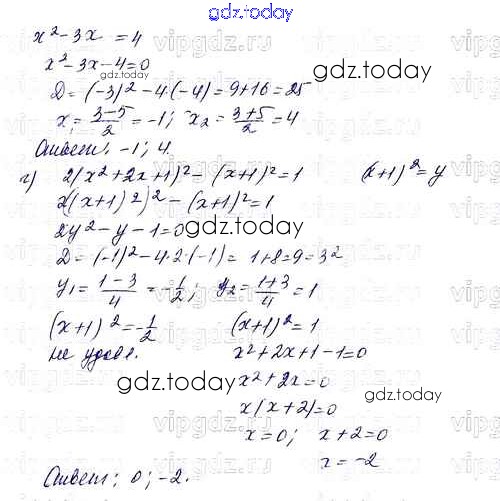 gdz.today
x² - 3x = 4
x² - 3x - 4 = 0
D = (-3)² - 4·(-4) = 9 + 16 = 25
gdz.today
x₁ = (3-5)/2 = -1; x₂ = (3+5)/2 = 4
Ответ: -1; 4.
г) 2(x² + 2x + 1)² - (x+1)² = 1 (x+1)² = y
2((x+1)²)² - (x+1)² = 1
gdz.today
2y² - y - 1 = 0
D = (-1)² - 4·2·(-1) = 1 + 8 = 9 = 3²
y₁ = (1-3)/4 = -1/2; y₂ = (1+3)/4 = 1
(x+1)² = -1/2 (x+1)² = 1
не удовл. x² + 2x + 1 - 1 = 0
gdz.today
x² + 2x = 0
gdz.today
x(x+2) = 0
x = 0; x + 2 = 0
x = -2
Ответ: 0; -2.